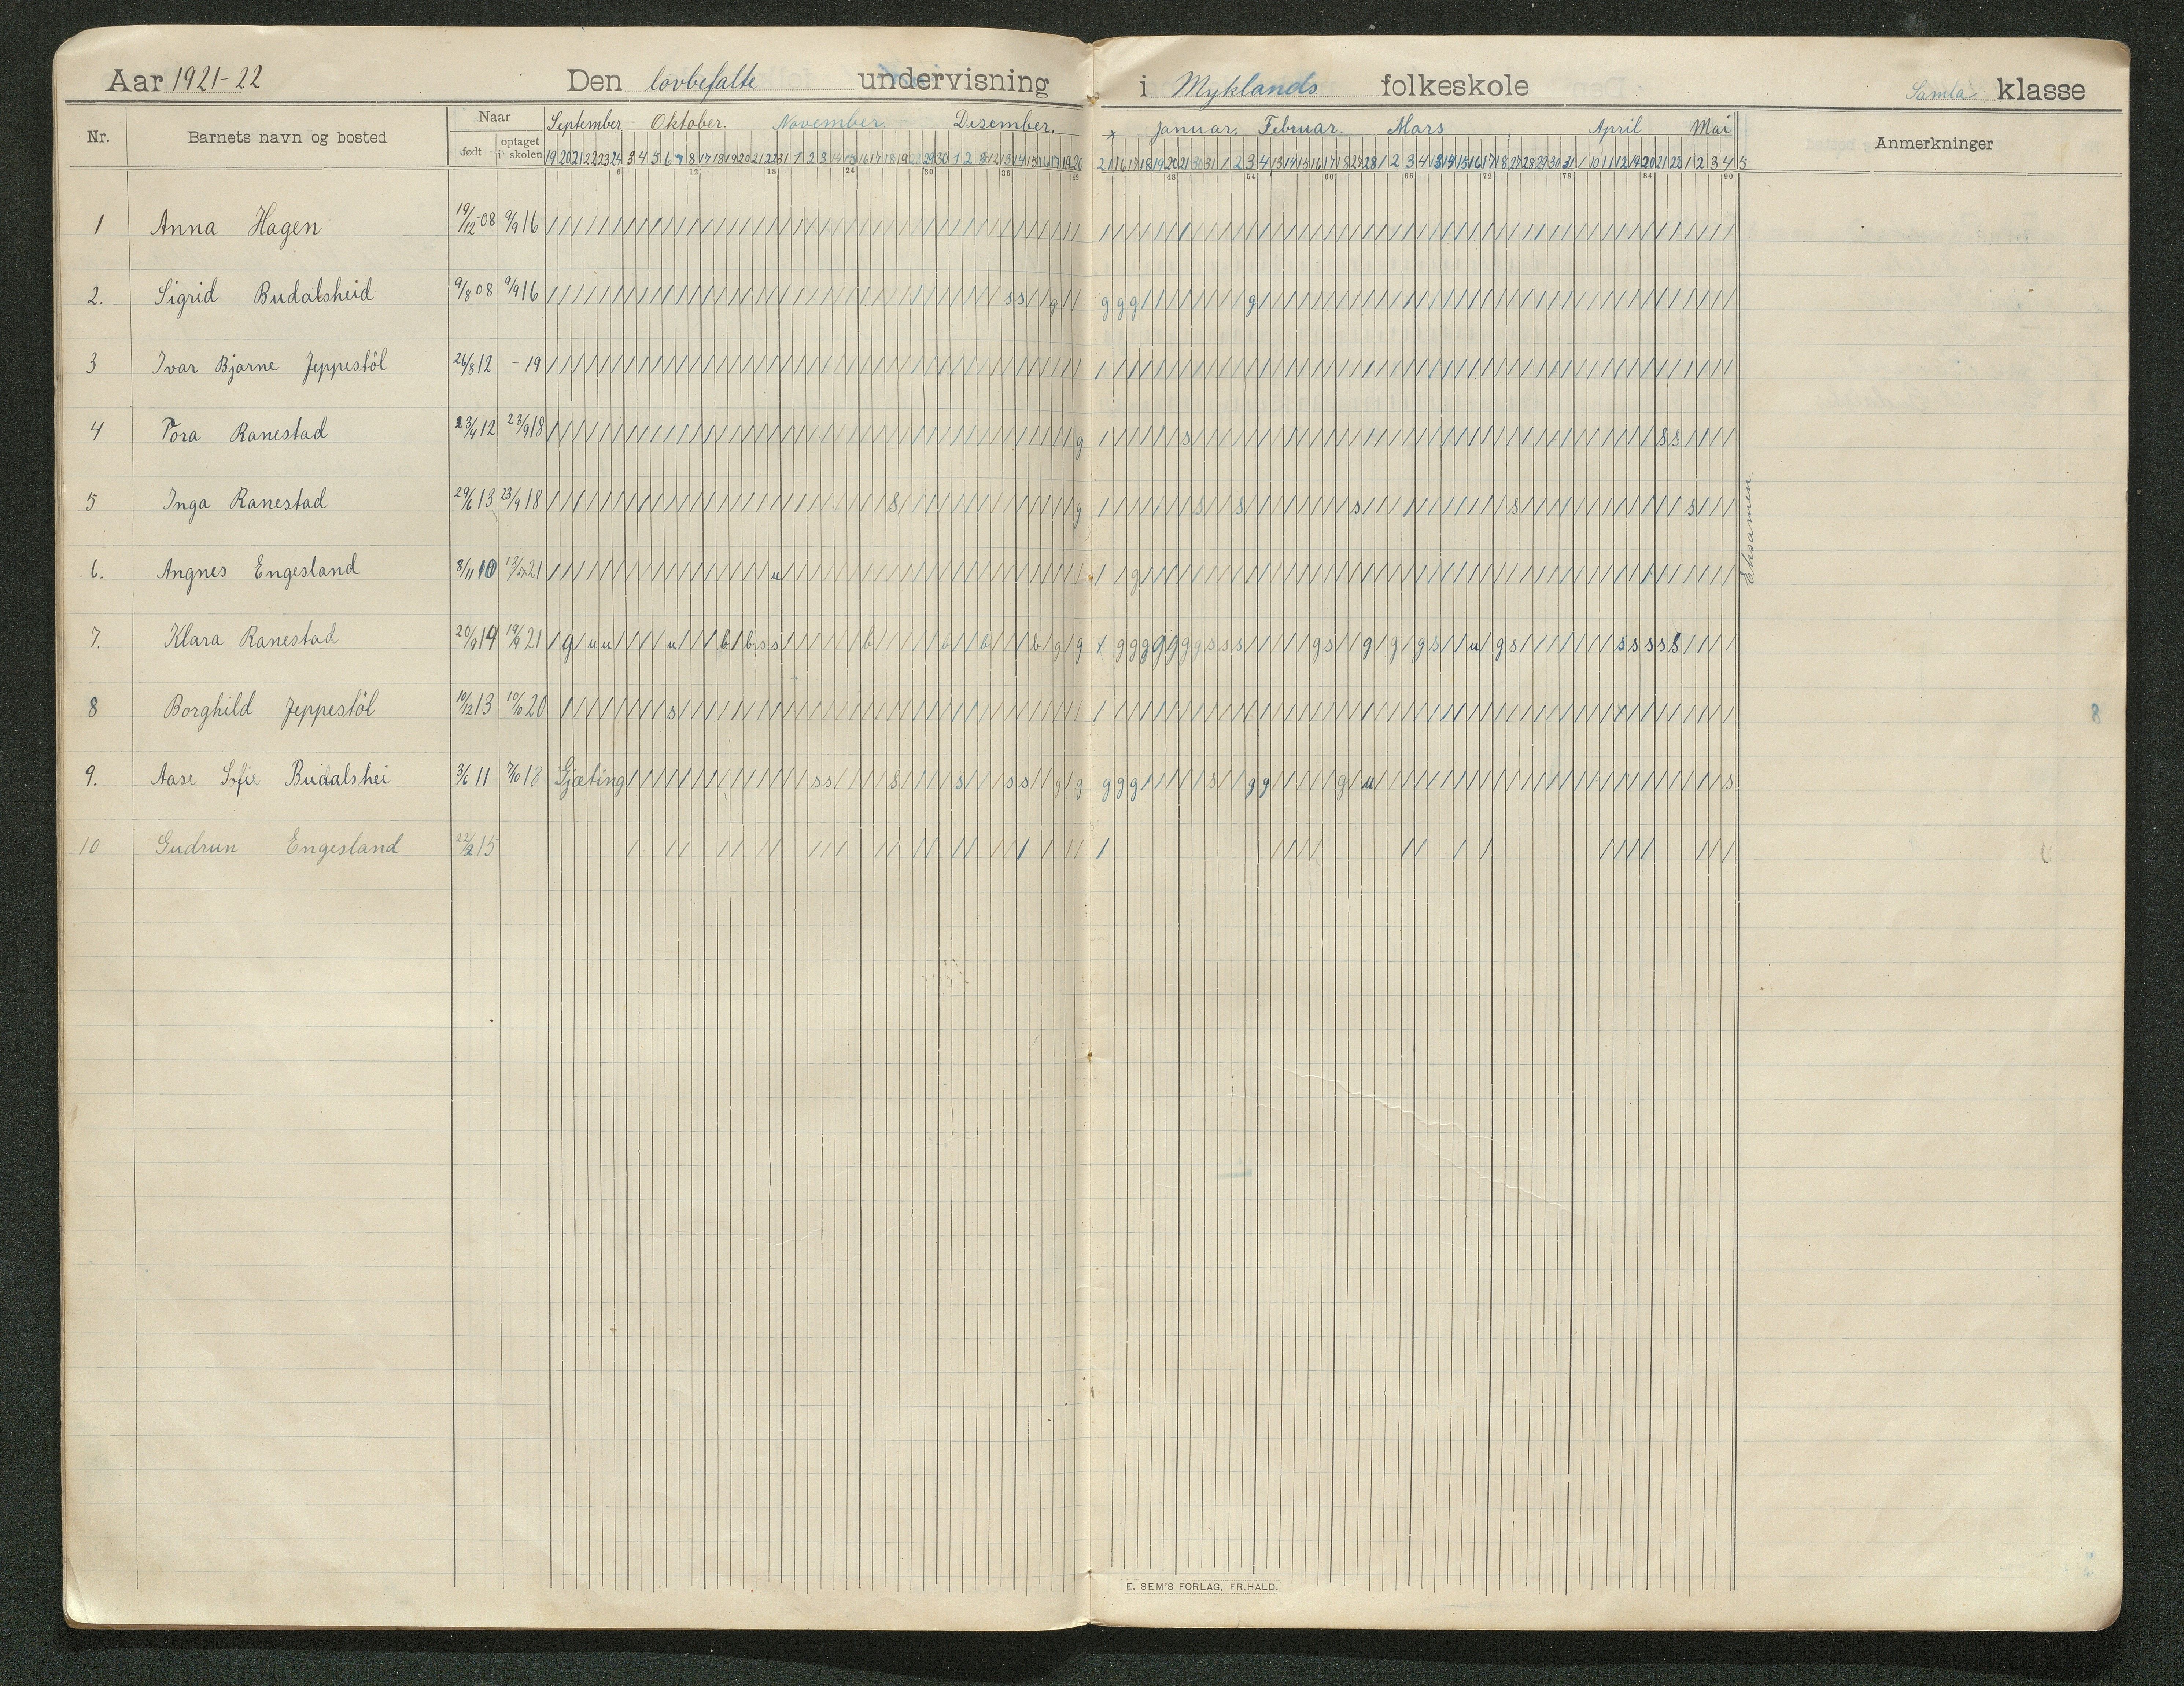 Aar 1921-22 Den lovbefalte undervisning i Myklands folkeskole Samla klasse
Nr. Barnets navn og bosted Naar født optaget i skolen September Oktober. November. Desember. x Januar. Februar. Mars April Mai Anmerkninger
6 12 18 24 30 36 42 48 54 60 66 72 78 84 90
1 Anna Hagen 19/12 08 9/9 16
2. Sigrid Budalsheid 9/8 08 9/9 16 s s g g g g g
3 Ivar Bjarne Jeppestöl 26/8 12 - 19
4 Tora Ranestad 23/4 12 23/9 18 g s s s
5 Inga Ranestad 29/6 13 23/9 18 s g s s s s s
6. Angnes Engesland 8/11 10 21 u g
7. Klara Ranestad 20/9 14 19/9 21
8 Borghild Jeppestöl 10/12 13 10/10 20 s
9. Aase Sofie Budalshei 3/6 11 7/10 18 Gjæting s s s s s s g g g g g s g g g u s
10 Gudrun Engesland 22/2 15
Eksamen.
E. SEM'S FORLAG, FR.HALD.